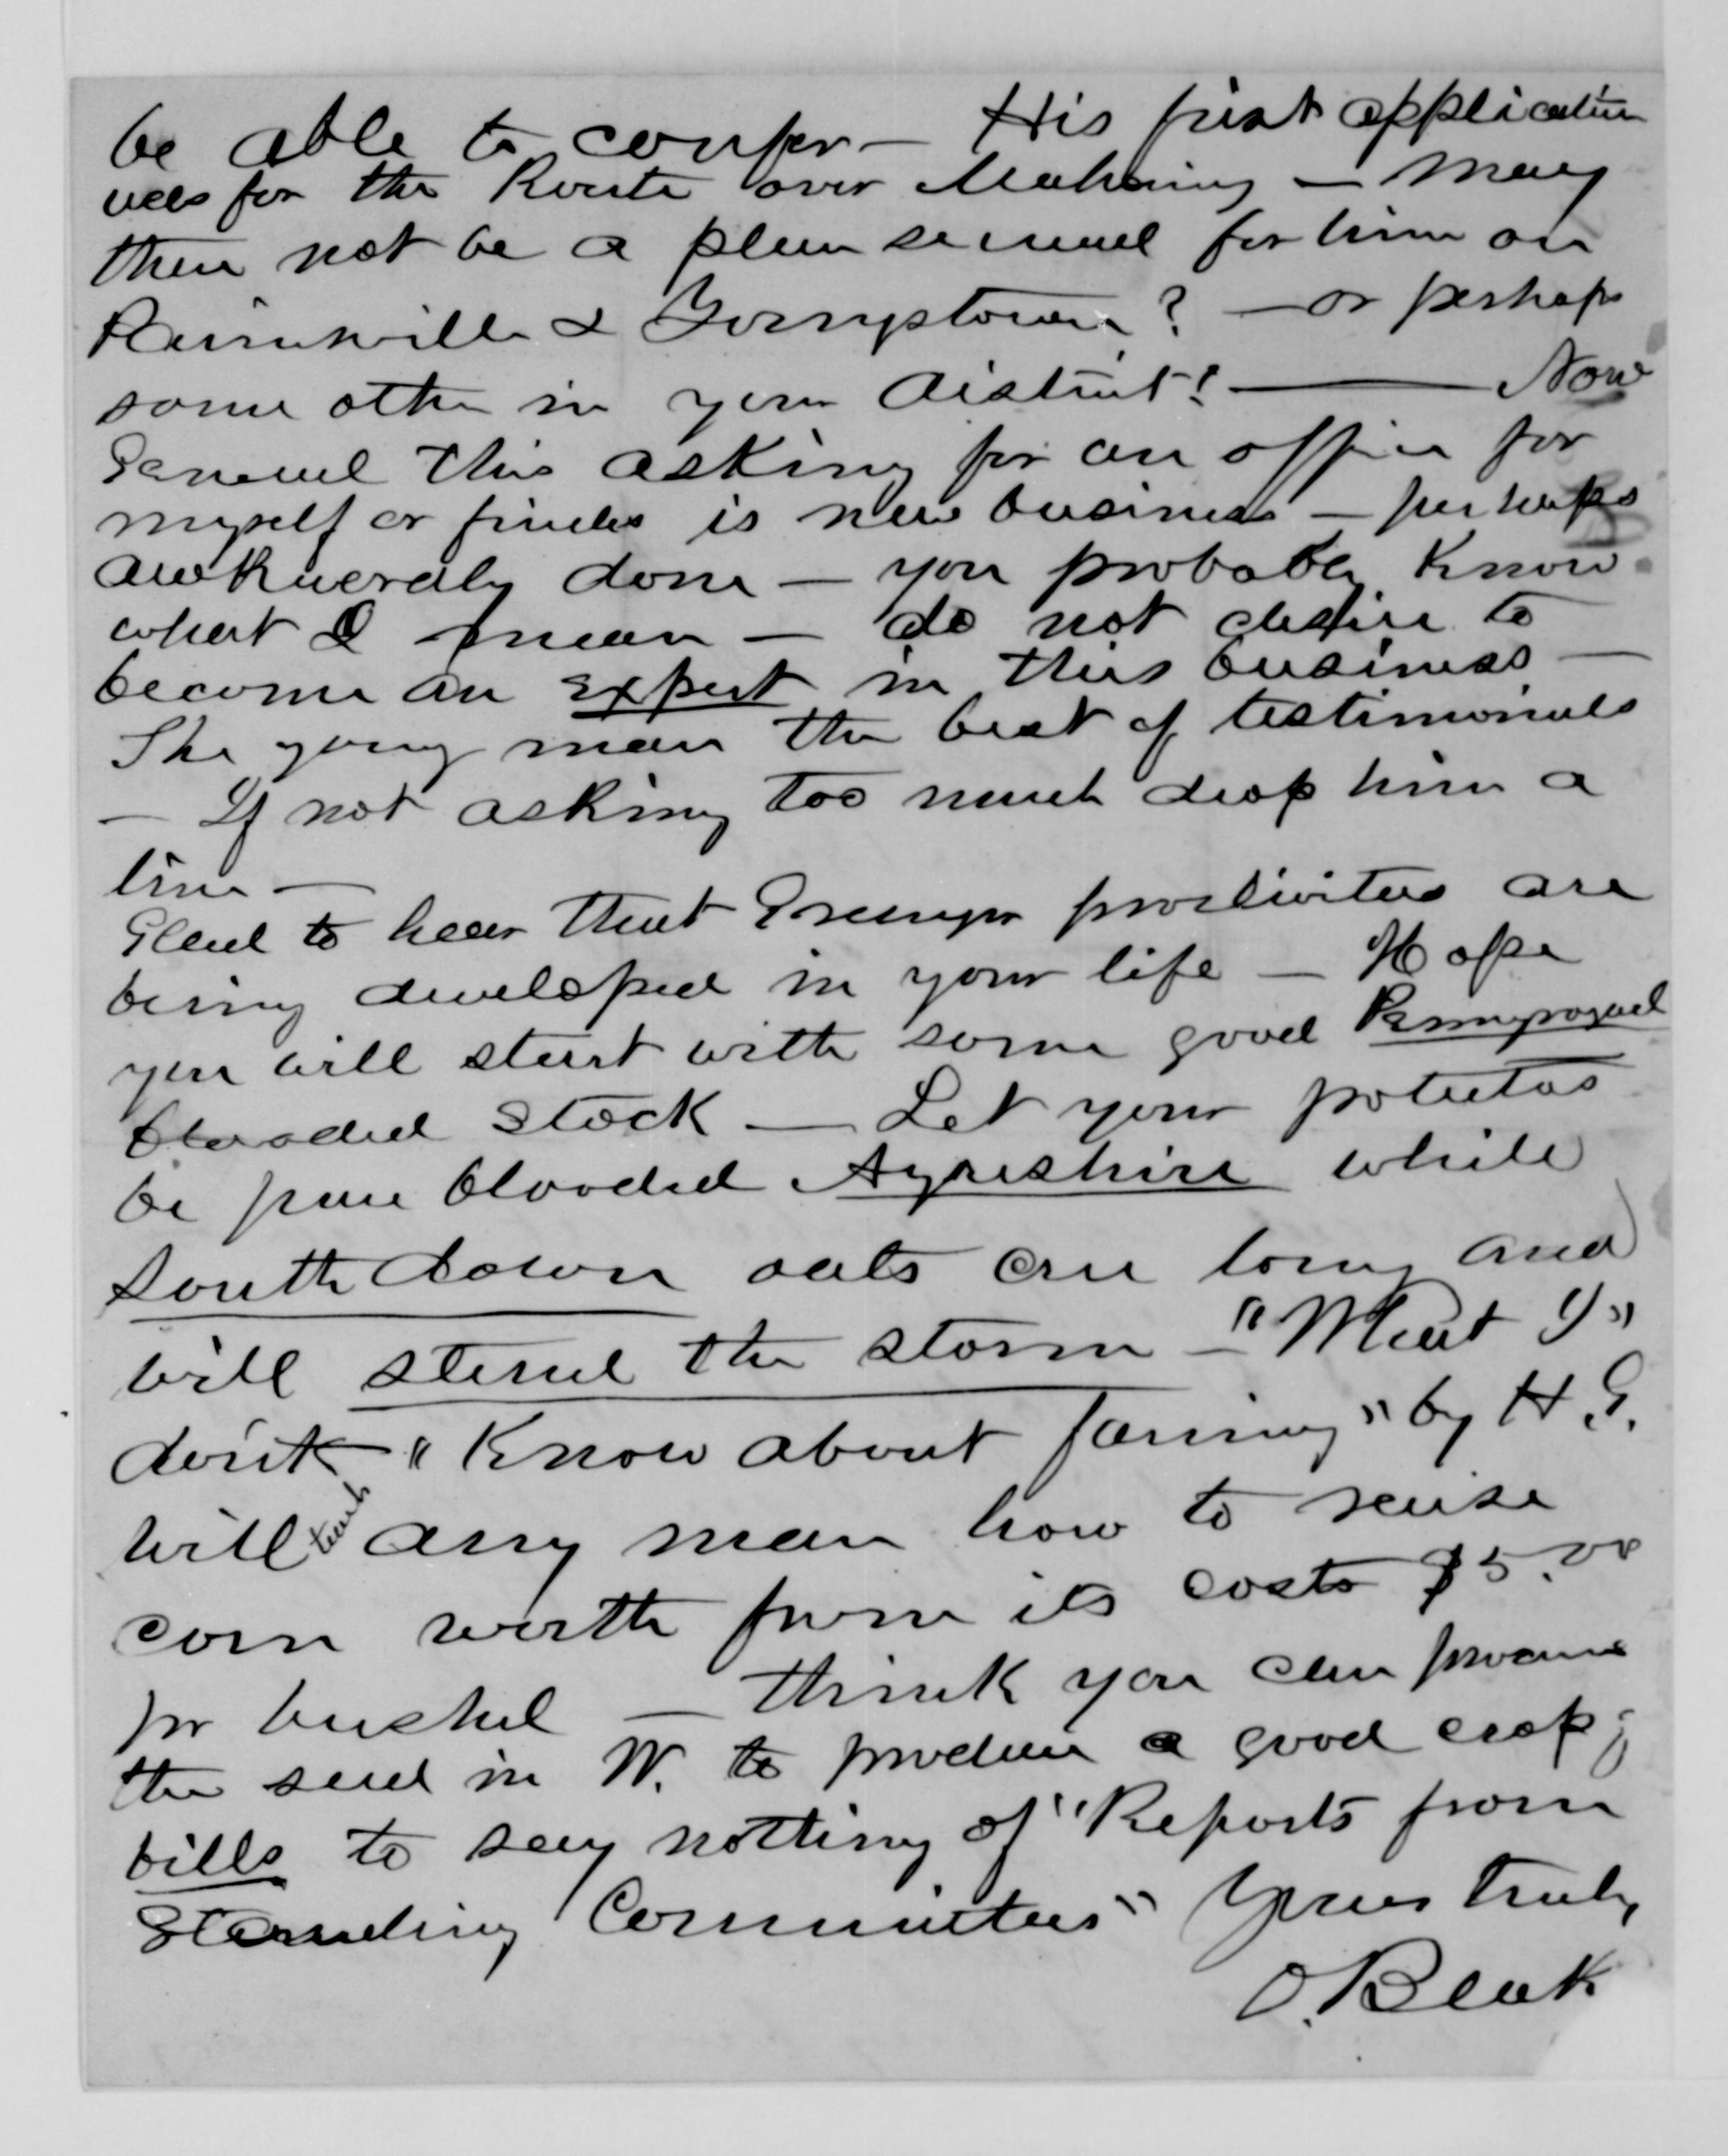 be able to confer — His first application
was for the Route over Mahoning — May
there not be a place secured for him on
Painesville & Youngstown? — or perhaps
some other in your district? — Now
General this asking for an office for
myself or friends is new business — perhaps
awkwardly done — you probably know
what I mean — do not desire to
become an expert in this business —
The young man the best of testimonials
— If not asking too much drop him a
line —
Glad to hear that Granger proclivities are
being developed in your life — Hope
you will start with some good Pennyroyal
blooded stock — Let your potatoes
be pure blooded Ayreshire while
South down oats are long and
will stand the storm — "What I"
don't "Know about farming" by H. G.
will teach any man how to raise
corn worth from its costs $5.00
pr bushel — think you can procure
the seed in W. to produce a good crop;
bills to say nothing of "Reports from
Standing Committees" Yours truly,
O. Beak